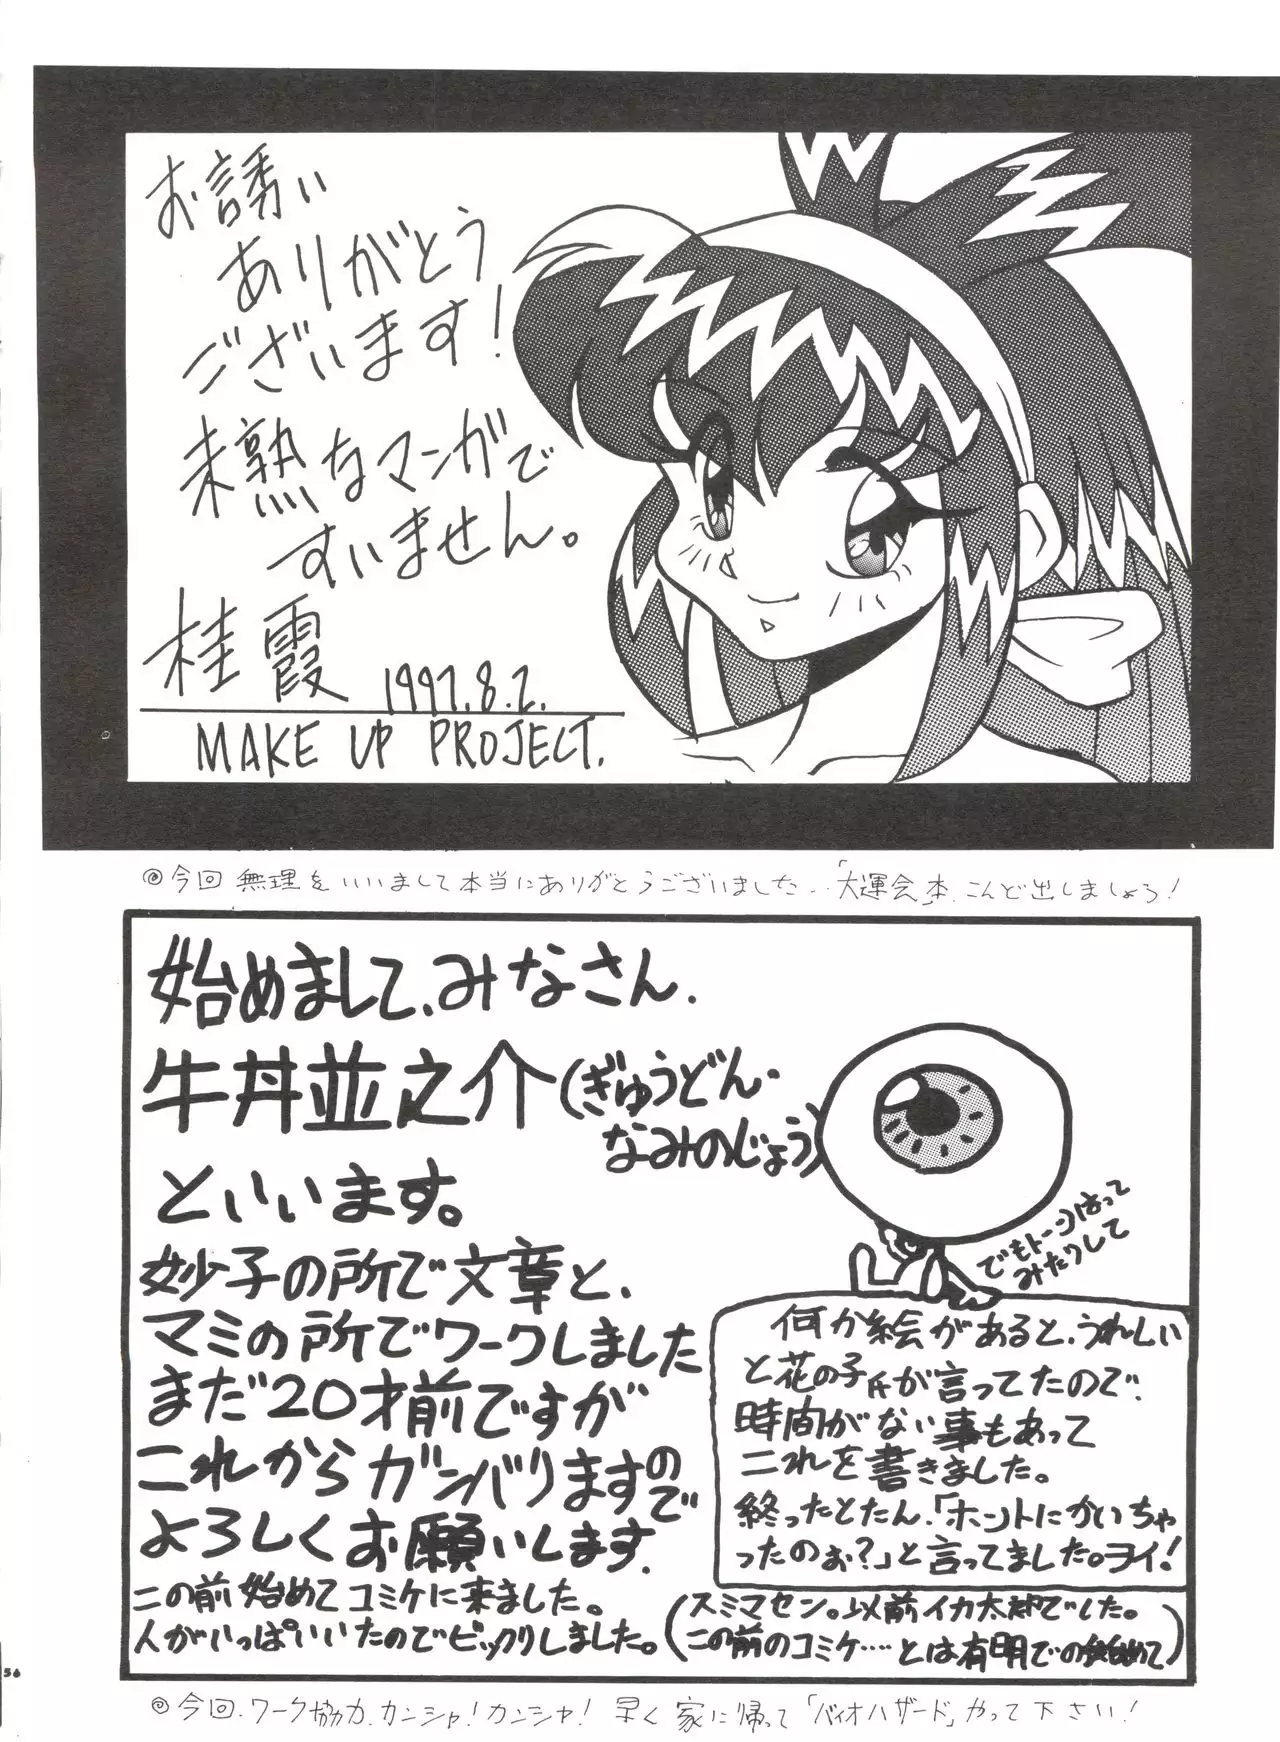 お誘い
ありがとう
ございます!
未熟なマンガで
すいません。
桂霞 1997.8.2.
MAKE UP PROJECT.
◎今回無理をいいまして本当にありがとうございました…「大運会」本、こんど出しましょう!
始めまして、みなさん.
牛丼並之介(ぎゅうどん・
なみのじょう)
といいます。
妙子の所で文章と、
マミの所でワークしました
まだ20才前ですが
これからガンバりますので
よろしくお願いします.
この前始めてコミケに来ました。
人がいっぱいいたのでビックリしました。
でもトーンはって
みたりして
何か絵があると、うれしい
と花の子氏が言ってたので、
時間がない事もあって
これを書きました。
終ったとたん、「ホントにかいちゃ
ったのぉ?」と言ってました。ヨイ!
(スミマセン。以前イカ太郎でした。
この前のコミケ‥‥とは有明での始めて)
56
◎今回、ワーク協力、カンシャ!カンシャ! 早く家に帰って「バイオハザード」やって下さい!